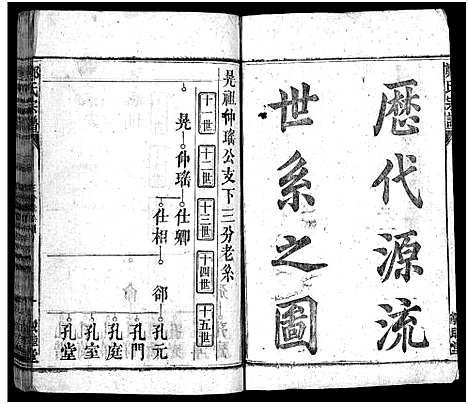 鄭氏宗譜
歷代源流
世系之圖
晃祖仲瑤公支下三分老系
十一世 十二世 十三世 十四世 十五世
晃 仲瑤 仕卿
仕相 郤 孔元
孔門
孔庭
孔室
孔堂
鄭氏宗譜